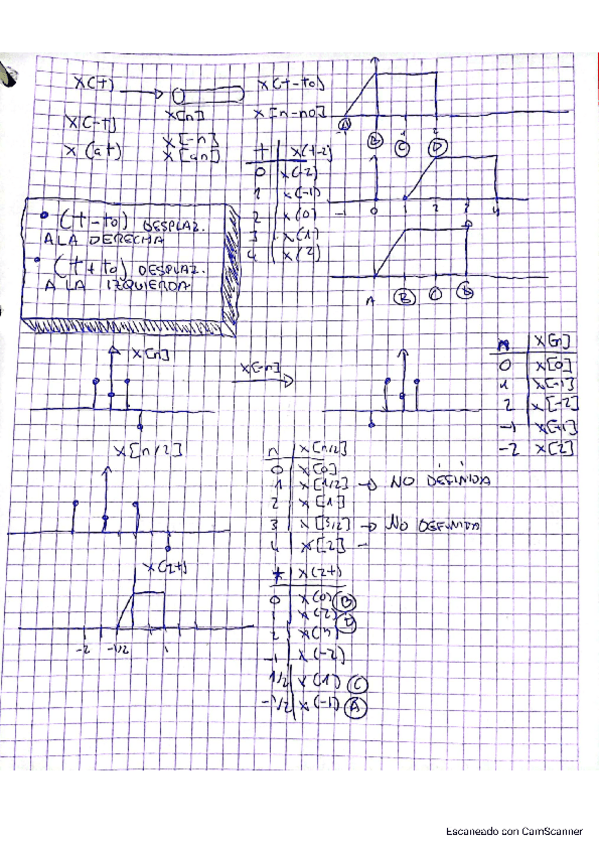 x(t)
x[n]
x(t-to)
x[n-no]
x(-t]
x[-n]
x(at)
x[an]
A
B C D
t | x(t-2)
0 | x(-2)
1 | x(-1)
2 | x(0)
3 | x(1)
4 | x(2)
-1 0 1 2 3 4
• (t-to) DESPLAZ.
A LA DERECHA
• (t+to) DESPLAZ.
A LA IZQUIERDA
A B C
x[n]
x[-n]
n | x[n]
0 | x[0]
1 | x[-1]
2 | x[-2]
-1 | x[+1]
-2 | x[2]
x[n/2]
n | x[n/2]
0 | x[0]
1 | x[1/2] → NO DEFINIDA
2 | x[1]
3 | x[3/2] → NO DEFINIDA
4 | x[2] -
x(2t)
-2 -1/2 1
t | x(2t)
0 | x(0) B
1 | x(2) D
2 | x(4)
-1 | x(-2)
1/2 | x(1) C
-1/2 | x(-1) A
Escaneado con CamScanner